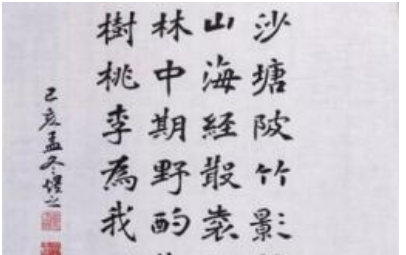 沙塘陂竹影
山海經散
林中期野酌
樹桃李為我
己亥孟冬之